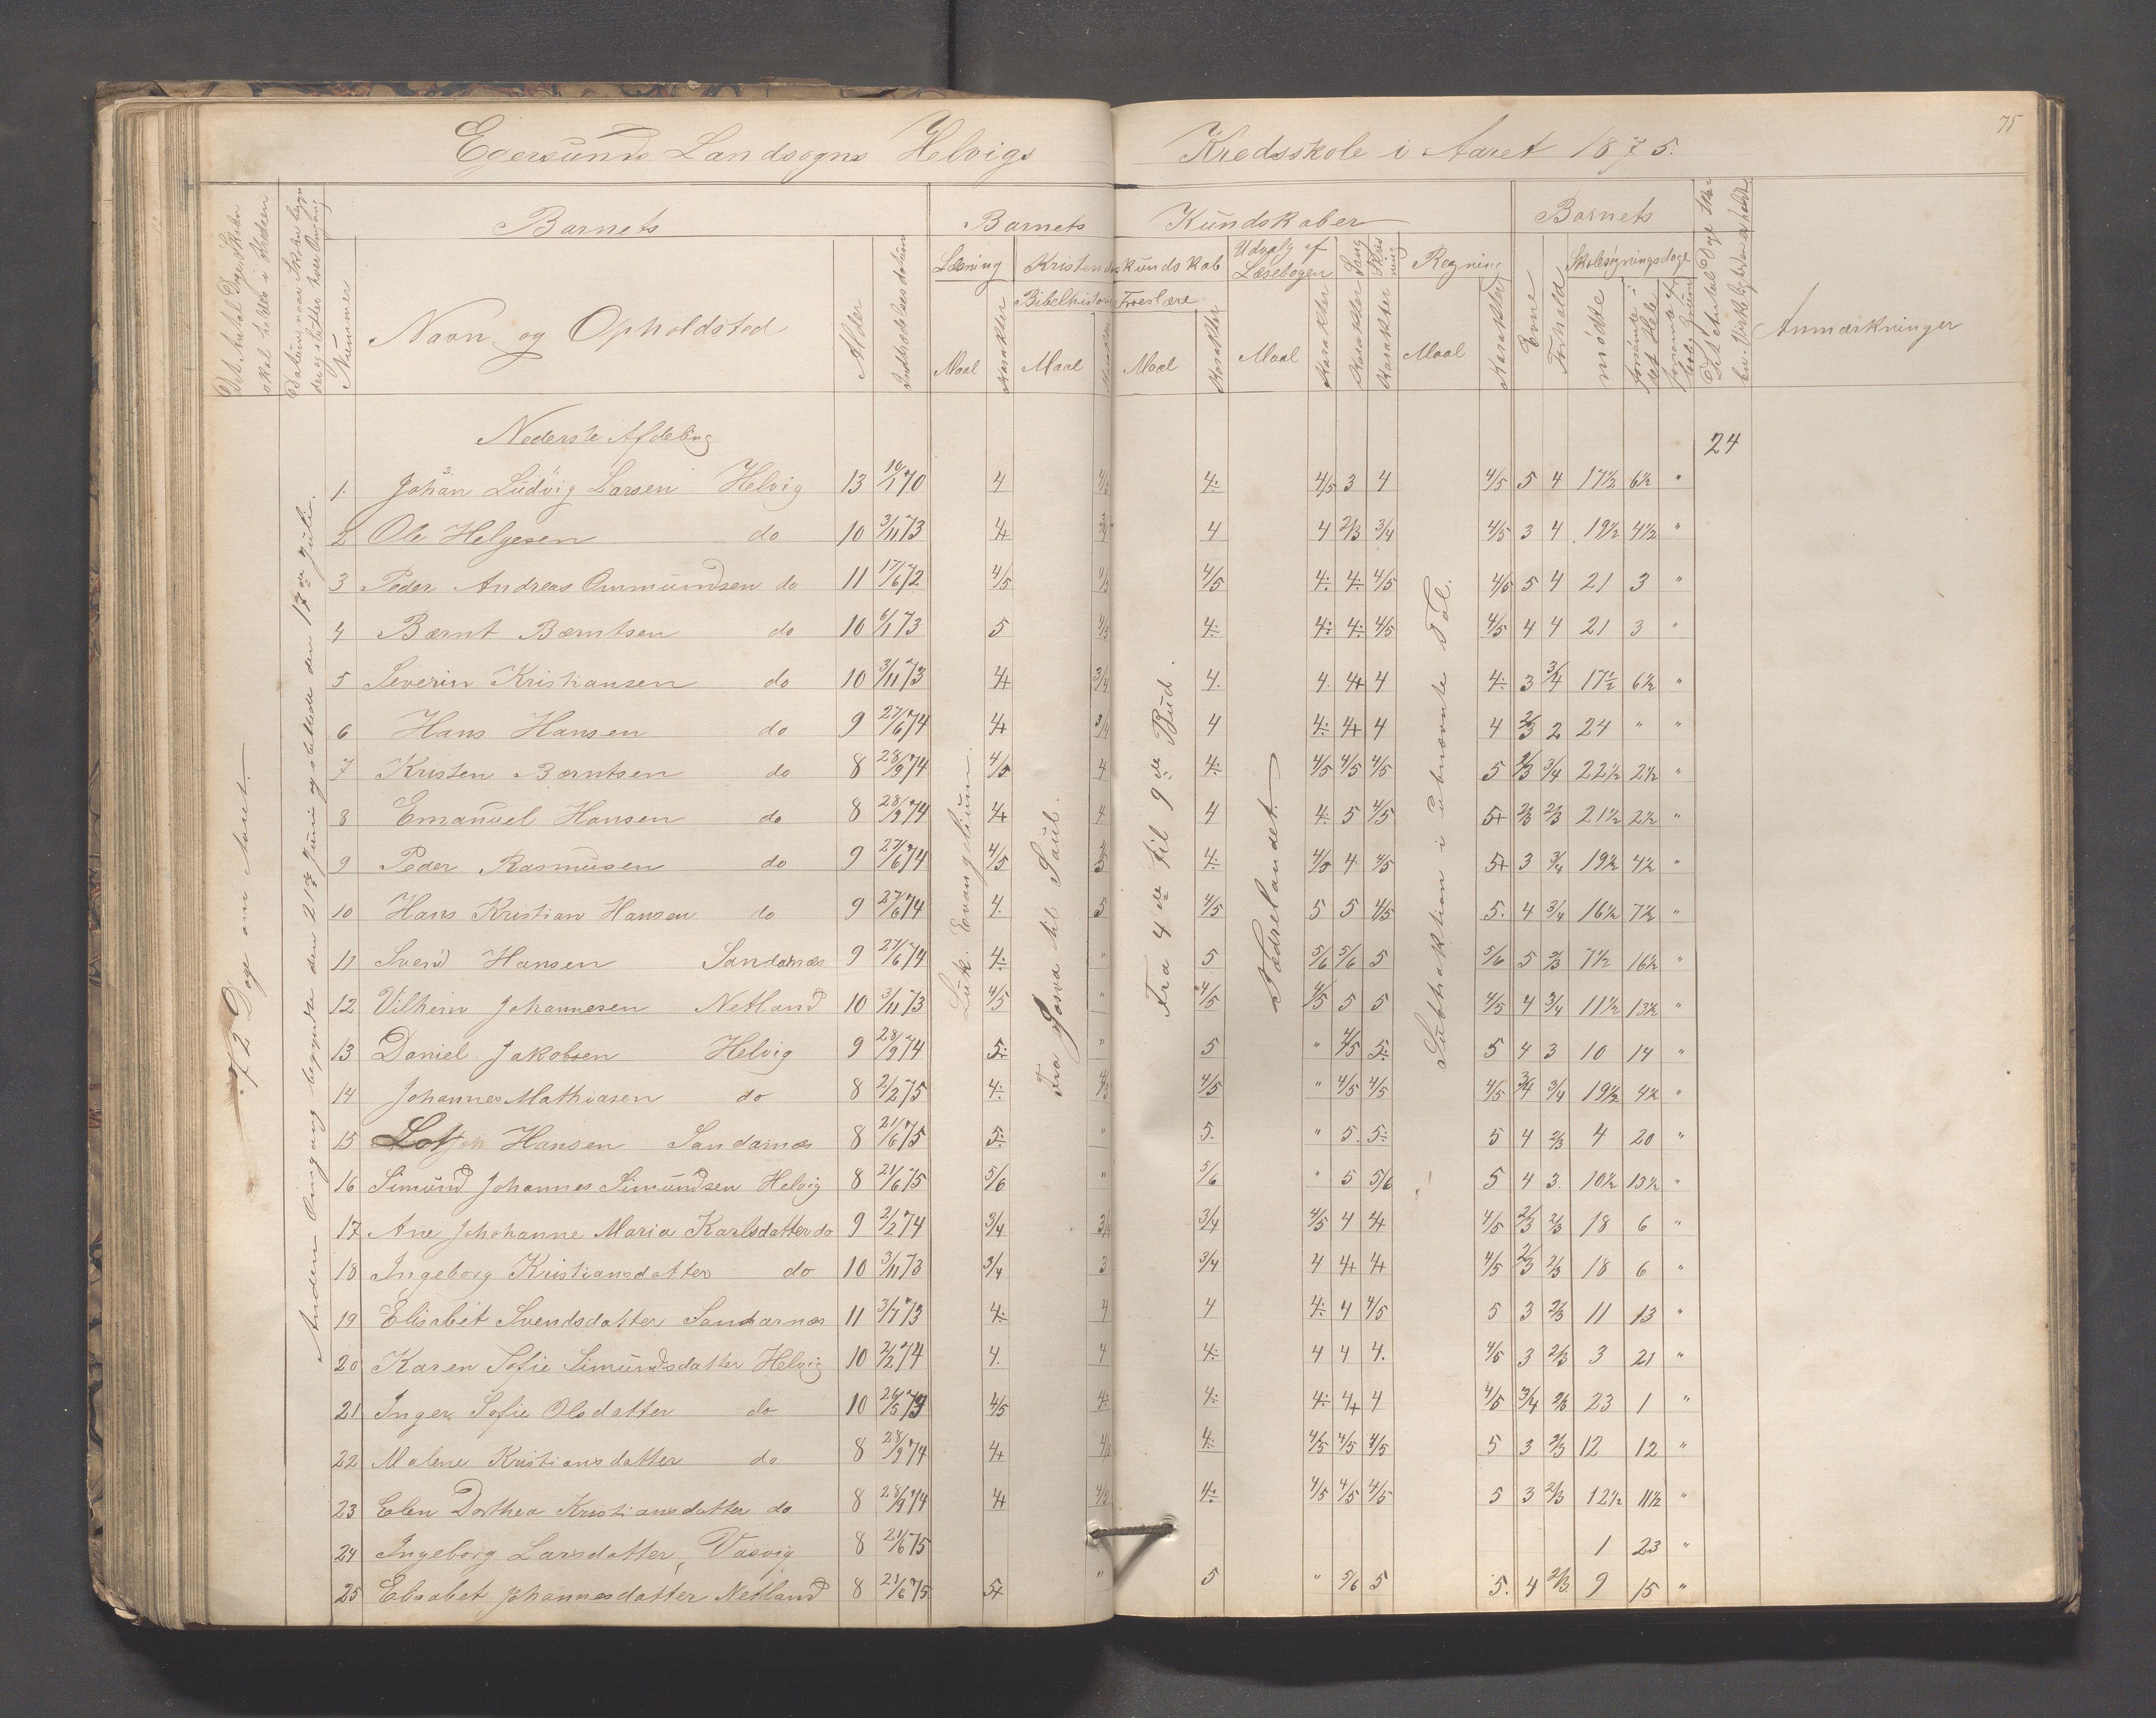 75
Egersunds Landsogns Helvigs Kredsskole i Aaret 1875.
Det Antal Dage Skolen skal holdes i Kredsen
Datum naar Skolen begynder og slutter hver Omgang
Nummer
Barnets
Navn og Opholdsted
Alder
Indtrædelsesdatum
Barnets Kundskaber
Læsning
Maal
Karakter
Kristendomskundskab
Bibelhistorie
Maal
Karakter
Troeslære
Maal
Karakter
Udvalg af Læsebogen
Maal
Karakter
Sang
Karakter
Skrivning
Karakter
Regning
Maal
Karakter
Barnets
Evne
Forhold
Skolesøgningsdage
mødte
forsømte i det Hele
forsømte af lovlig Grund
Det Antal Dage Skolen i Virkeligheden er holdt
Anmærkninger
72 Dage om Aaret.
Anden Omgang begyndte den 21de Juni og sluttede den 17de Juli.
Luk. Evangelium.
Fra Josva til Saul.
Fra 4de til 9de Bud.
Fædrelandet.
Subtraktion i ubenævnte Tal.
Nederste Afdeling
24
1. Johan Ludvig Larsen Helvig 13 10/1 70 4 4/5 4÷ 4/5 3 4 4/5 5 4 17½ 6½ "
2 Ole Helgesen do 10 3/11 73 4+ 3/4 4 4 2/3 3/4 4/5 3 4 19½ 4½ "
3 Peder Andreas Ommundsen do 11 17/6 72 4/5 4/5 4/5 4÷ 4÷ 4/5 4/5 5 4 21 3 "
4 Bærnt Bærntsen do 10 6/1 73 5 4/5 4÷ 4÷ 4÷ 4/5 4/5 4 4 21 3 "
5 Severin Kristiansen do 10 3/11 73 4+ 3/4 4. 4. 4+ 4 4÷ 3 3/4 17½ 6½ "
6 Hans Hansen do 9 27/6 74 4+ 3/4 4 4÷ 4+ 4 4 2/3 2 24 " "
7 Kristen Bærntsen do 8 28/9 74 4/5 4 4÷ 4/5 4/5 4/5 5 2/3 3/4 22½ 2½ "
8 Emanuel Hansen do 8 28/9 74 4+ 4 4 4÷ 5 4/5 5+ 2/3 2/3 21½ 2½ "
9 Peder Rasmusen do 9 27/6 74 4/5 4/5 4÷ 4/5 4 4/5 5+ 3 3/4 19½ 4½ "
10 Hans Kristian Hansen do 9 27/6 74 4. 5 4/5 5 5 4/5 5. 4 3/4 16½ 7½ "
11 Svend Hansen Sandarnæs 9 27/6 74 4÷ " 5 5/6 5/6 5 5/6 5 2/3 7½ 16½ "
12 Vilhelm Johannesen Netland 10 3/11 73 4/5 " 4/5 4/5 5 5 4/5 4 3/4 11½ 13½ "
13 Daniel Jakobsen Helvig 9 28/9 74 5÷ " 5 " 4/5 5÷ 5 4 3 10 14 "
14 Johannes Mathiasen do 8 2/2 75 4÷ 4/5 4/5 " 4/5 4/5 4/5 3/4 3/4 19½ 4½ "
15 Lot Hansen Sandarnæs 8 21/6 75 5÷ " 5. " 5. 5÷ 5 4 2/3 4 20 "
16 Simund Johannes Simundsen Helvig 8 21/6 75 5/6 " 5/6 " 5 5/6 5 4 3. 10½ 13½ "
17 Ane Johohanne Maria Karlsdatter do 9 2/2 74 3/4 3/4 3/4 4/5 4 4+ 4/5 2/3 2/3 18 6 "
18 Ingeborg Kristiansdatter do 10 3/11 73 3/4 3 3/4 4 4+ 4+ 4/5 2/3 2/3 18 6 "
19 Elisabet Svendsdatter Sandarnæs 11 3/7 73 4÷ 4 4 4÷ 4 4/5 5 3 2/3 11 13 "
20 Karen Sofie Simundsdatter Helvig 10 2/2 74 4. 4 4÷ 4 4 4. 4/5 3 2/3 3 21 "
21 Inger Sofie Olsdatter do 10 26/5 73 4/5 4÷ 4÷ 4÷ 4+ 4 4/5 3/4 2/3 23 1 "
22 Malene Kristiansdatter do 8 28/9 74 4+ 4/5 4÷ 4/5 4/5 4/5 5 3 2/3 12 12 "
23 Elen Dorthea Kristiansdatter do 8 28/9 74 4+ 4/5 4÷ 4/5 4/5 4/5 5 3 2/3 12½ 11½ "
24 Ingeborg Larsdatter, Vasvig 8 21/6 75 1 23 "
25 Elisabet Johannesdatter Netland 8 21/6 75 5+ " 5 " 5/6 5 5. 4 2/3 9 15 "